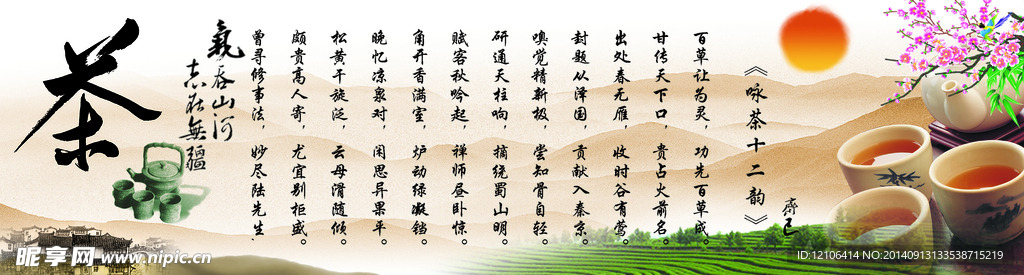 《咏茶十二韵》
齊己
百草让为灵，功先百草成。
甘传天下口，贵占火前名。
出处春无雁，收时谷有莺。
封题从泽国，贡献入秦京。
嗅觉精新极，尝知骨自轻。
研通天柱响，摘绕蜀山明。
赋客秋吟起，禅师昼卧惊。
角开香满室，炉动绿凝铛。
晚忆凉泉对，闲思异果平。
松黄干旋泛，云母滑随倾。
颇贵高人寄，尤宜别柜盛。
曾寻修事法，妙尽陆先生.
氣吞山河
志在無疆
茶
昵享网 www.nipic.cn
ID:12106414 NO:20140913133538715219